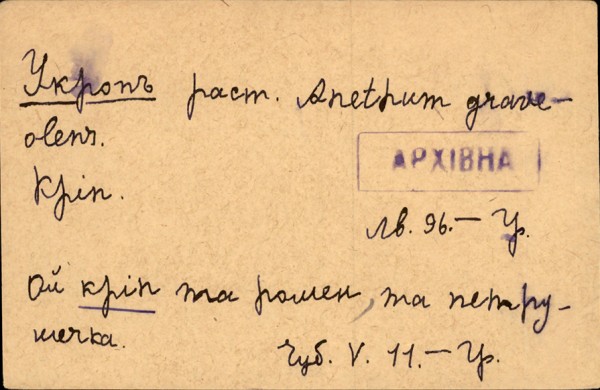 Укропъ раст. Anethum grave-
olens.
АРХІВНА
Кріп.
Лв. 96. — Ур.
Ой кріп та ромен, та петру-
шечка.
Чуб. V. 11. — Ур.